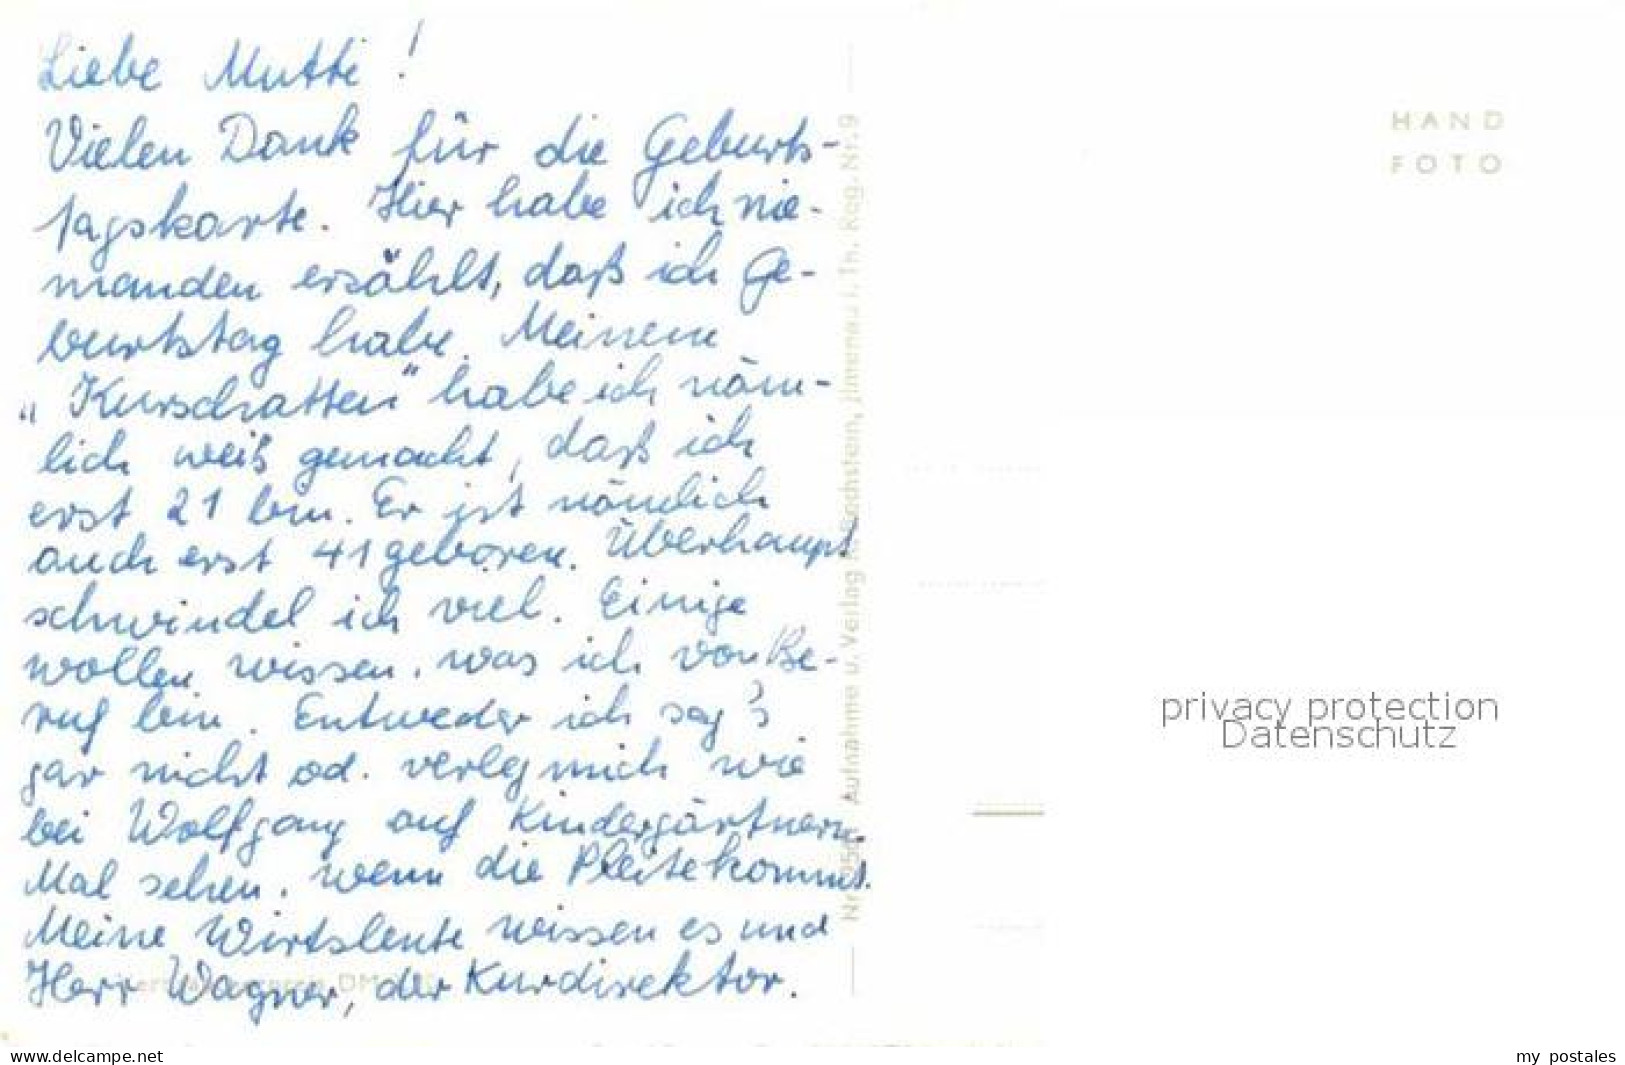 Liebe Mutti!
Vielen Dank für die Geburts-
tagskarte. Hier habe ich nie-
manden erzählt, daß ich Ge-
burtstag habe. Meinem
„Kurschatten" habe ich näm-
lich weiß gemacht, daß ich
erst 21 bin. Er ist nämlich
auch erst 41 geboren. Überhaupt
schwindel ich viel. Einige
wollen wissen, was ich von Be-
ruf bin. Entweder ich sag's
gar nicht od. verleg mich wie
bei Wolfgang auf Kindergärtnerin.
Mal sehen, wenn die Pleite kommt.
Meine Wirtsleute wissen es und
Herr Wagner, der Kurdirektor.
Aufnahme u. Verlag Ilmenau i. Th. Rag.-Nr. 9
HAND
FOTO
privacy protection
Datenschutz
www.delcampe.net
my_postales